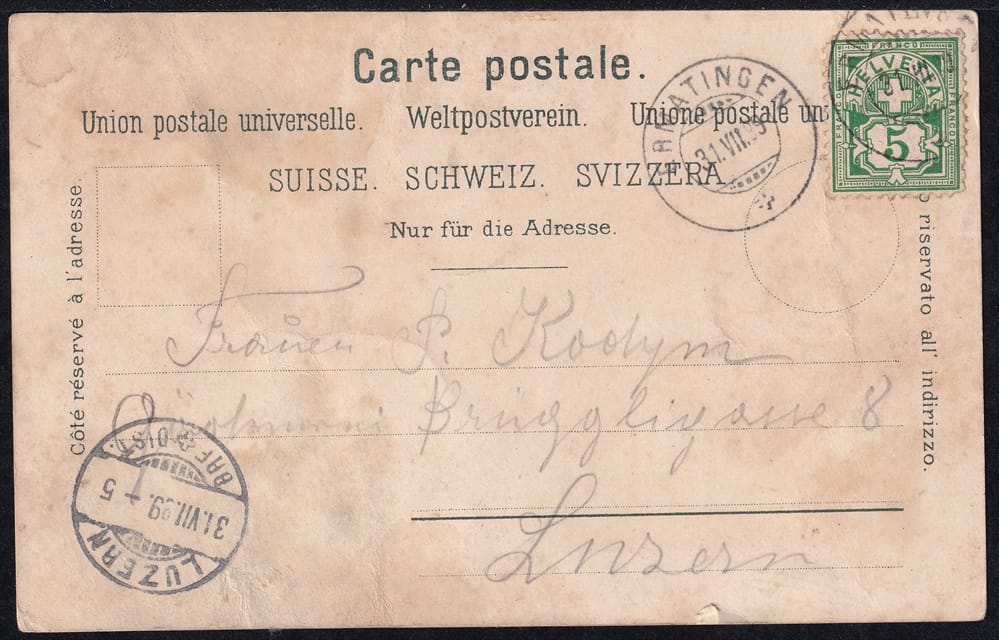 Carte postale.
Union postale universelle. Weltpostverein. Unione postale un
SUISSE. SCHWEIZ. SVIZZERA
Nur für die Adresse.
Côté réservé à l'adresse.
o riservato all' indirizzo.
FRANCO
HELVETIA
FRANCO
FRANCO
5
ERMATINGEN
31.VII.99
MATIN
31
P. Kodym
Brüggligasse 8
Luzern
BRF. DIST.
31.VII.99.-5
LUZERN